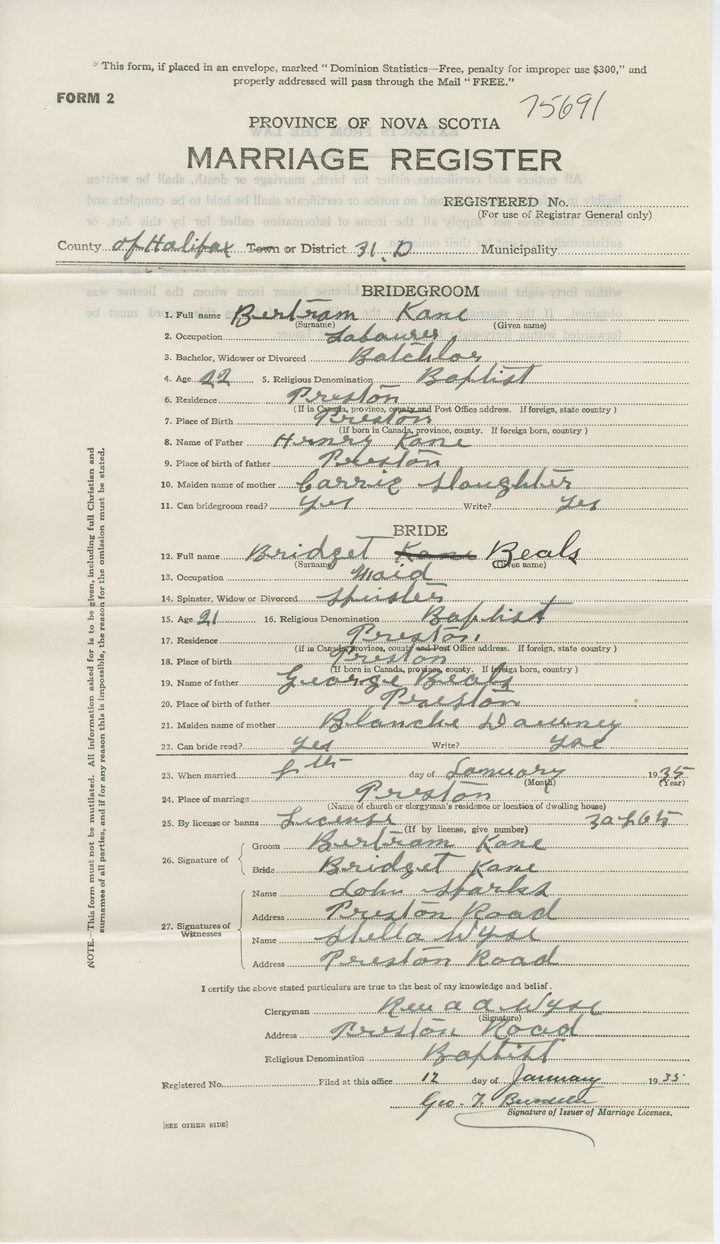 " This form, if placed in an envelope, marked " Dominion Statistics—Free, penalty for improper use $300," and
properly addressed will pass through the Mail " FREE."
FORM 2
75691
PROVINCE OF NOVA SCOTIA
MARRIAGE REGISTER
REGISTERED No.
(For use of Registrar General only)
County of Halifax Town or District 31, D Municipality
BRIDEGROOM
1. Full name Bertram Kane
(Surname) (Given name)
2. Occupation Labourer
3. Bachelor, Widower or Divorced Batchlor
4. Age 22 5. Religious Denomination Baptist
6. Residence Preston
(If in Canada, province, county and Post Office address. If foreign, state country )
7. Place of Birth Preston
(If born in Canada, province, county. If foreign born, country )
8. Name of Father Henry Kane
9. Place of birth of father Preston
10. Maiden name of mother Carrie Slaughter
11. Can bridegroom read? Yes Write? Yes
BRIDE
12. Full name Bridget Kane Beals
(Surname) (Given name)
13. Occupation Maid
14. Spinster, Widow or Divorced Spinster
15. Age 21 16. Religious Denomination Baptist
17. Residence Preston
(If in Canada, province, county and Post Office address. If foreign, state country )
18. Place of birth Preston
(If born in Canada, province, county. If foreign born, country )
19. Name of father George Beals
20. Place of birth of father Preston
21. Maiden name of mother Blanche Downey
22. Can bride read? Yes Write? Yes
23. When married day of January 1935
(Month) (Year)
24. Place of marriage Preston
(Name of church or clergyman's residence or location of dwelling house)
25. By license or banns License
(If by license, give number)
26. Signature of Groom Bertram Kane
Bride Bridget Kane
27. Signatures of Witnesses
Name John Sparks
Address Preston Road
Name Stella Wyse
Address Preston Road
I certify the above stated particulars are true to the best of my knowledge and belief.
Clergyman Rev A A Wyse
(Signature)
Address Preston Road
Religious Denomination Baptist
Registered No. Filed at this office 12 day of January 1935
Geo. F.
Signature of Issuer of Marriage Licenses.
[SEE OTHER SIDE]
NOTE.—This form must not be mutilated. All information asked for is to be given, including full Christian and
surnames of all parties, and if for any reason this is impossible, the reason for the omission must be stated.